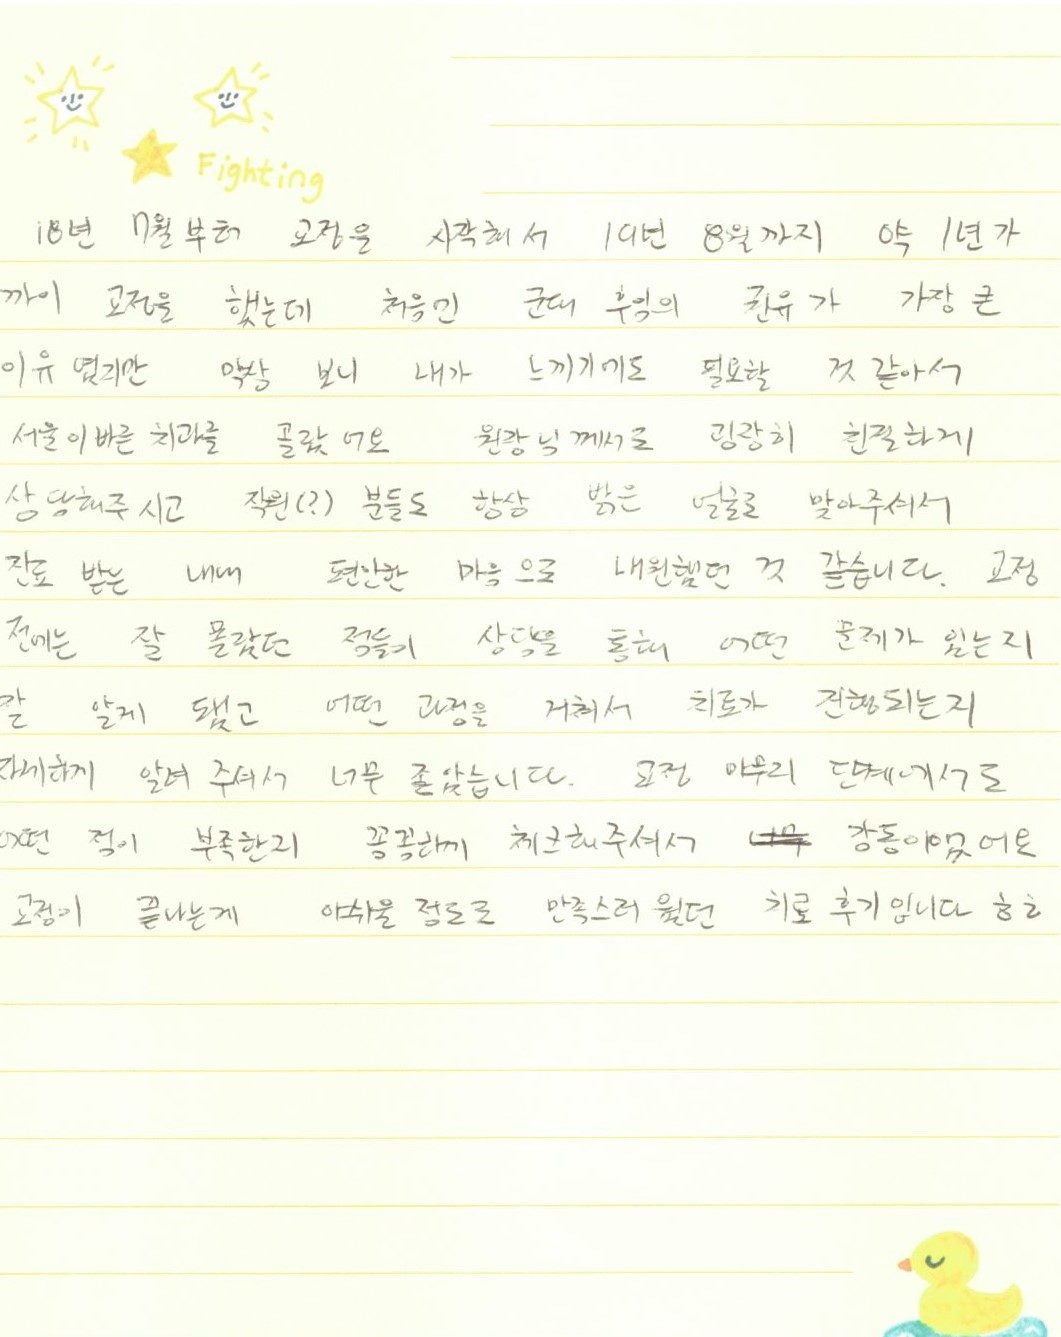 Fighting
18년 7월부터 교정을 시작해서 19년 8월까지 약 1년 가
까이 교정을 했는데 처음엔 군대 후임의 권유가 가장 큰
이유였지만 막상 보니 내가 느끼기에도 필요할 것 같아서
서울이바른치과를 골랐어요 원장님께서도 굉장히 친절하게
상담해주시고 직원(?)분들도 항상 밝은 얼굴로 맞아주셔서
진료 받는 내내 편안한 마음으로 내원했던 것 같습니다. 교정
전에는 잘 몰랐던 점들이 상담을 통해 어떤 문제가 있는지
잘 알게 됐고 어떤 과정을 거쳐서 치료가 진행되는지
자세하게 알려주셔서 너무 좋았습니다. 교정 마무리 단계에서도
어떤 점이 부족한지 꼼꼼하게 체크해주셔서 감동이었어요
교정이 끝나는게 아쉬울 정도로 만족스러웠던 치료 후기입니다 ㅎㅎ